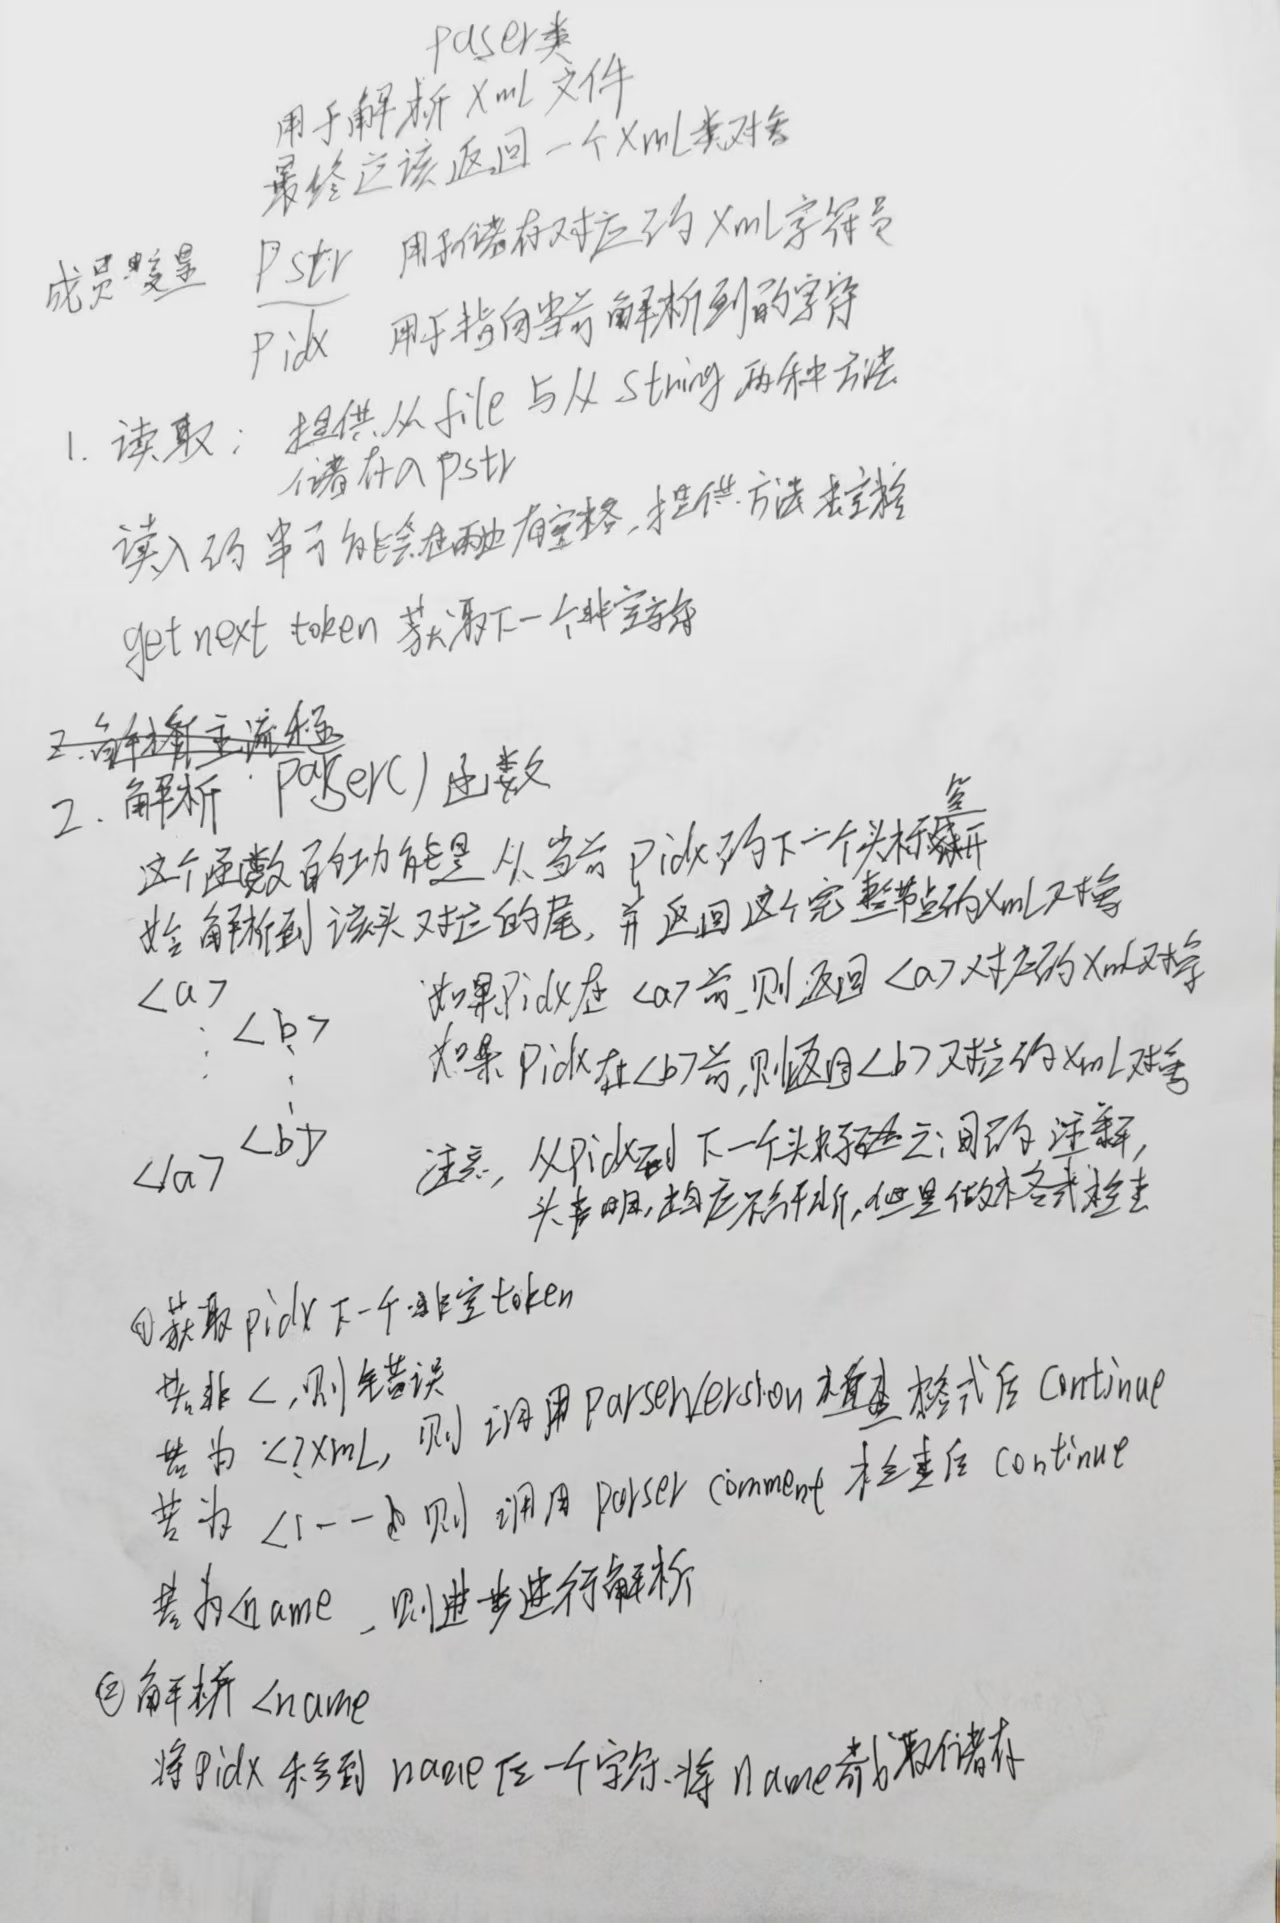 paser类
用于解析 Xml 文件
最终应该返回一个XmL类对象
成员变量 Pstr 用于储存对应的 XmL字符串
Pidx 用于指向当前解析到的字符
1. 读取: 提供从 file 与从 string 两种方法
储存入 pstr
读入的串可能会在两边有空格,提供方法去空格
get next token 获取下一个非空字符
2. 解析主流程
2. 解析 parser()函数
这个函数的功能是从当前 pidx 的下一个头标签开
始解析到该头对应的尾, 并返回这个完整节点的XmL对象
<a> 如果Pidx在 <a>前,则返回 <a>对应的XmL对象
<b> 如果 Pidx在<b>前,则返回<b>对应的XmL对象
<b>
</a> 注意, 从pidx到下一个头标签之间的注释,
头声明,均应不解析,但是做格式检查
①获取pidx下一个非空token
若非 <,则错误
若为 <?XmL, 则调用 parserVersion 检查格式后 continue
若为 <!-- 则调用 parser comment 检查后 continue
若为<name ,则进步进行解析
② 解析 <name
将Pidx 移到 name 后一个字符.将 name 读取储存